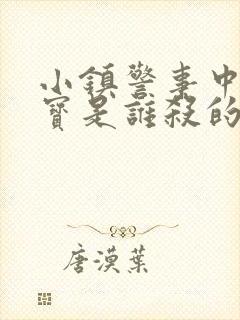 小鎮警事中
寳是誰殺的
唐漠葉